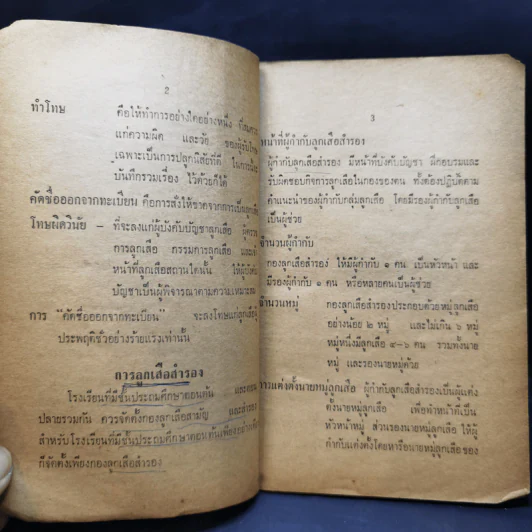 2
ทำโทษ คือให้ทำการอย่างใดอย่างหนึ่ง ที่สมควร
แก่ความผิด และวัย ของผู้รับโทษ
เฉพาะเป็นการปลูกนิสัยที่ดี ในการนี้
บันทึกรวมเรื่อง ไว้ด้วยก็ได้
คัดชื่อออกจากทะเบียน คือการสั่งให้ขาดจากการเป็นลูกเสือ
โทษผิดวินัย – ที่จะลงแก่ผู้บังคับบัญชาลูกเสือ ผู้ตรวจ
การลูกเสือ กรรมการลูกเสือ และเจ้า
หน้าที่ลูกเสือสถานใดนั้น ให้ผู้บังคับ
บัญชาเป็นผู้พิจารณาตามความเหมาะสม
การ "คัดชื่อออกจากทะเบียน" จะลงโทษแก่ลูกเสือผู้
ประพฤติชั่วอย่างร้ายแรงเท่านั้น
การลูกเสือสำรอง
โรงเรียนที่มีชั้นประถมศึกษาตอนต้น และตอน
ปลายรวมกัน ควรจัดตั้งกองลูกเสือสามัญ และสำรอง
สำหรับโรงเรียนที่มีชั้นประถมศึกษาตอนต้นเพียงอย่างเดียว
ก็จัดตั้งเพียงกองลูกเสือสำรอง
3
หน้าที่ผู้กำกับลูกเสือสำรอง
ผู้กำกับลูกเสือสำรอง มีหน้าที่บังคับบัญชา ฝึกอบรมและ
รับผิดชอบกิจการลูกเสือในกองของตน ทั้งต้องปฏิบัติตาม
คำแนะนำของผู้กำกับกลุ่มลูกเสือ โดยมีรองผู้กำกับลูกเสือ
เป็นผู้ช่วย
จำนวนผู้กำกับ
กองลูกเสือสำรอง ให้มีผู้กำกับ ๑ คน เป็นหัวหน้า และ
มีรองผู้กำกับ ๑ คน หรือหลายคนเป็นผู้ช่วย
จำนวนหมู่ กองลูกเสือสำรองประกอบด้วยหมู่ลูกเสือ
อย่างน้อย ๒ หมู่ และไม่เกิน ๖ หมู่
หมู่หนึ่งมีลูกเสือ ๔-๖ คน รวมทั้งนาย
หมู่ และรองนายหมู่ด้วย
การแต่งตั้งนายหมู่ลูกเสือ ผู้กำกับลูกเสือสำรองเป็นผู้แต่ง
ตั้งนายหมู่ลูกเสือ เพื่อทำหน้าที่เป็น
หัวหน้าหมู่ ส่วนรองนายหมู่ลูกเสือ ให้ผู้
กำกับแต่งตั้งโดยหารือนายหมู่ลูกเสือของ